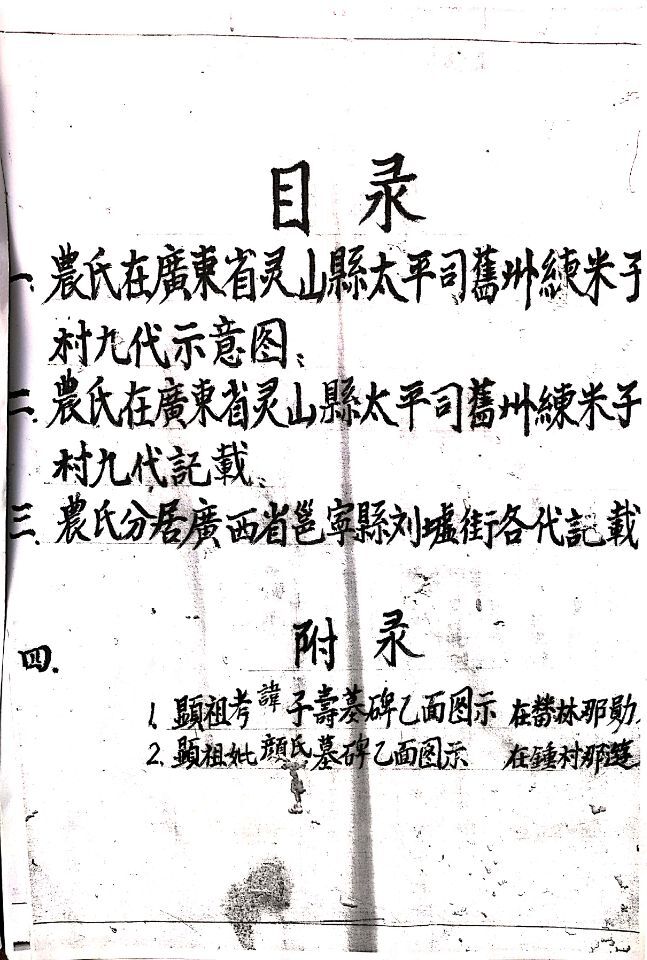 目录
一、農氏在廣東省灵山縣太平司舊州練米子
村九代示意图；
二、農氏在廣東省灵山縣太平司舊州練米子
村九代記載；
三、農氏分居廣西省邕寧縣刘墟街各代記載
四.
附录
1. 顯祖考諱子壽墓碑乙面图示 在林那勋
2. 顯祖妣顔氏墓碑乙面图示 在錘村那